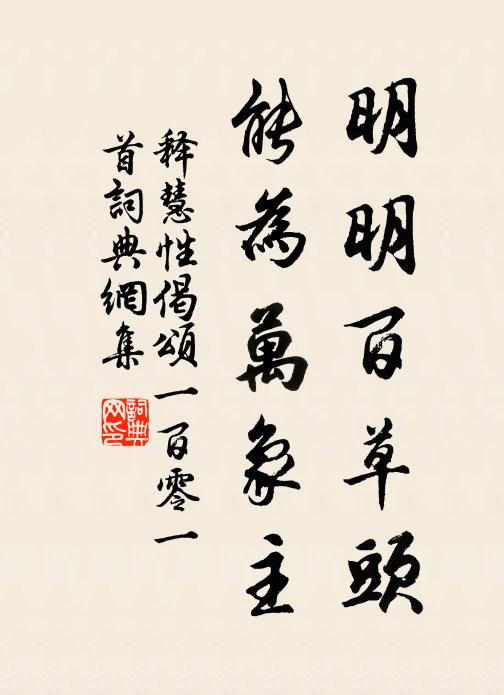 明明百草頭
能為萬象主
释慧性偈頌一百零一
首詞典網集
詞典網印